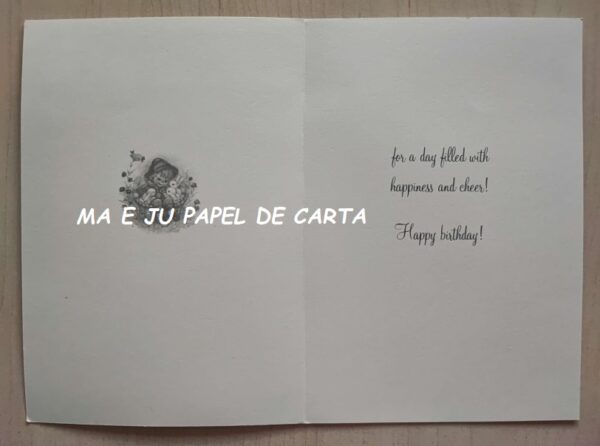 MA E JU PAPEL DE CARTA
for a day filled with
happiness and cheer!
Happy birthday!